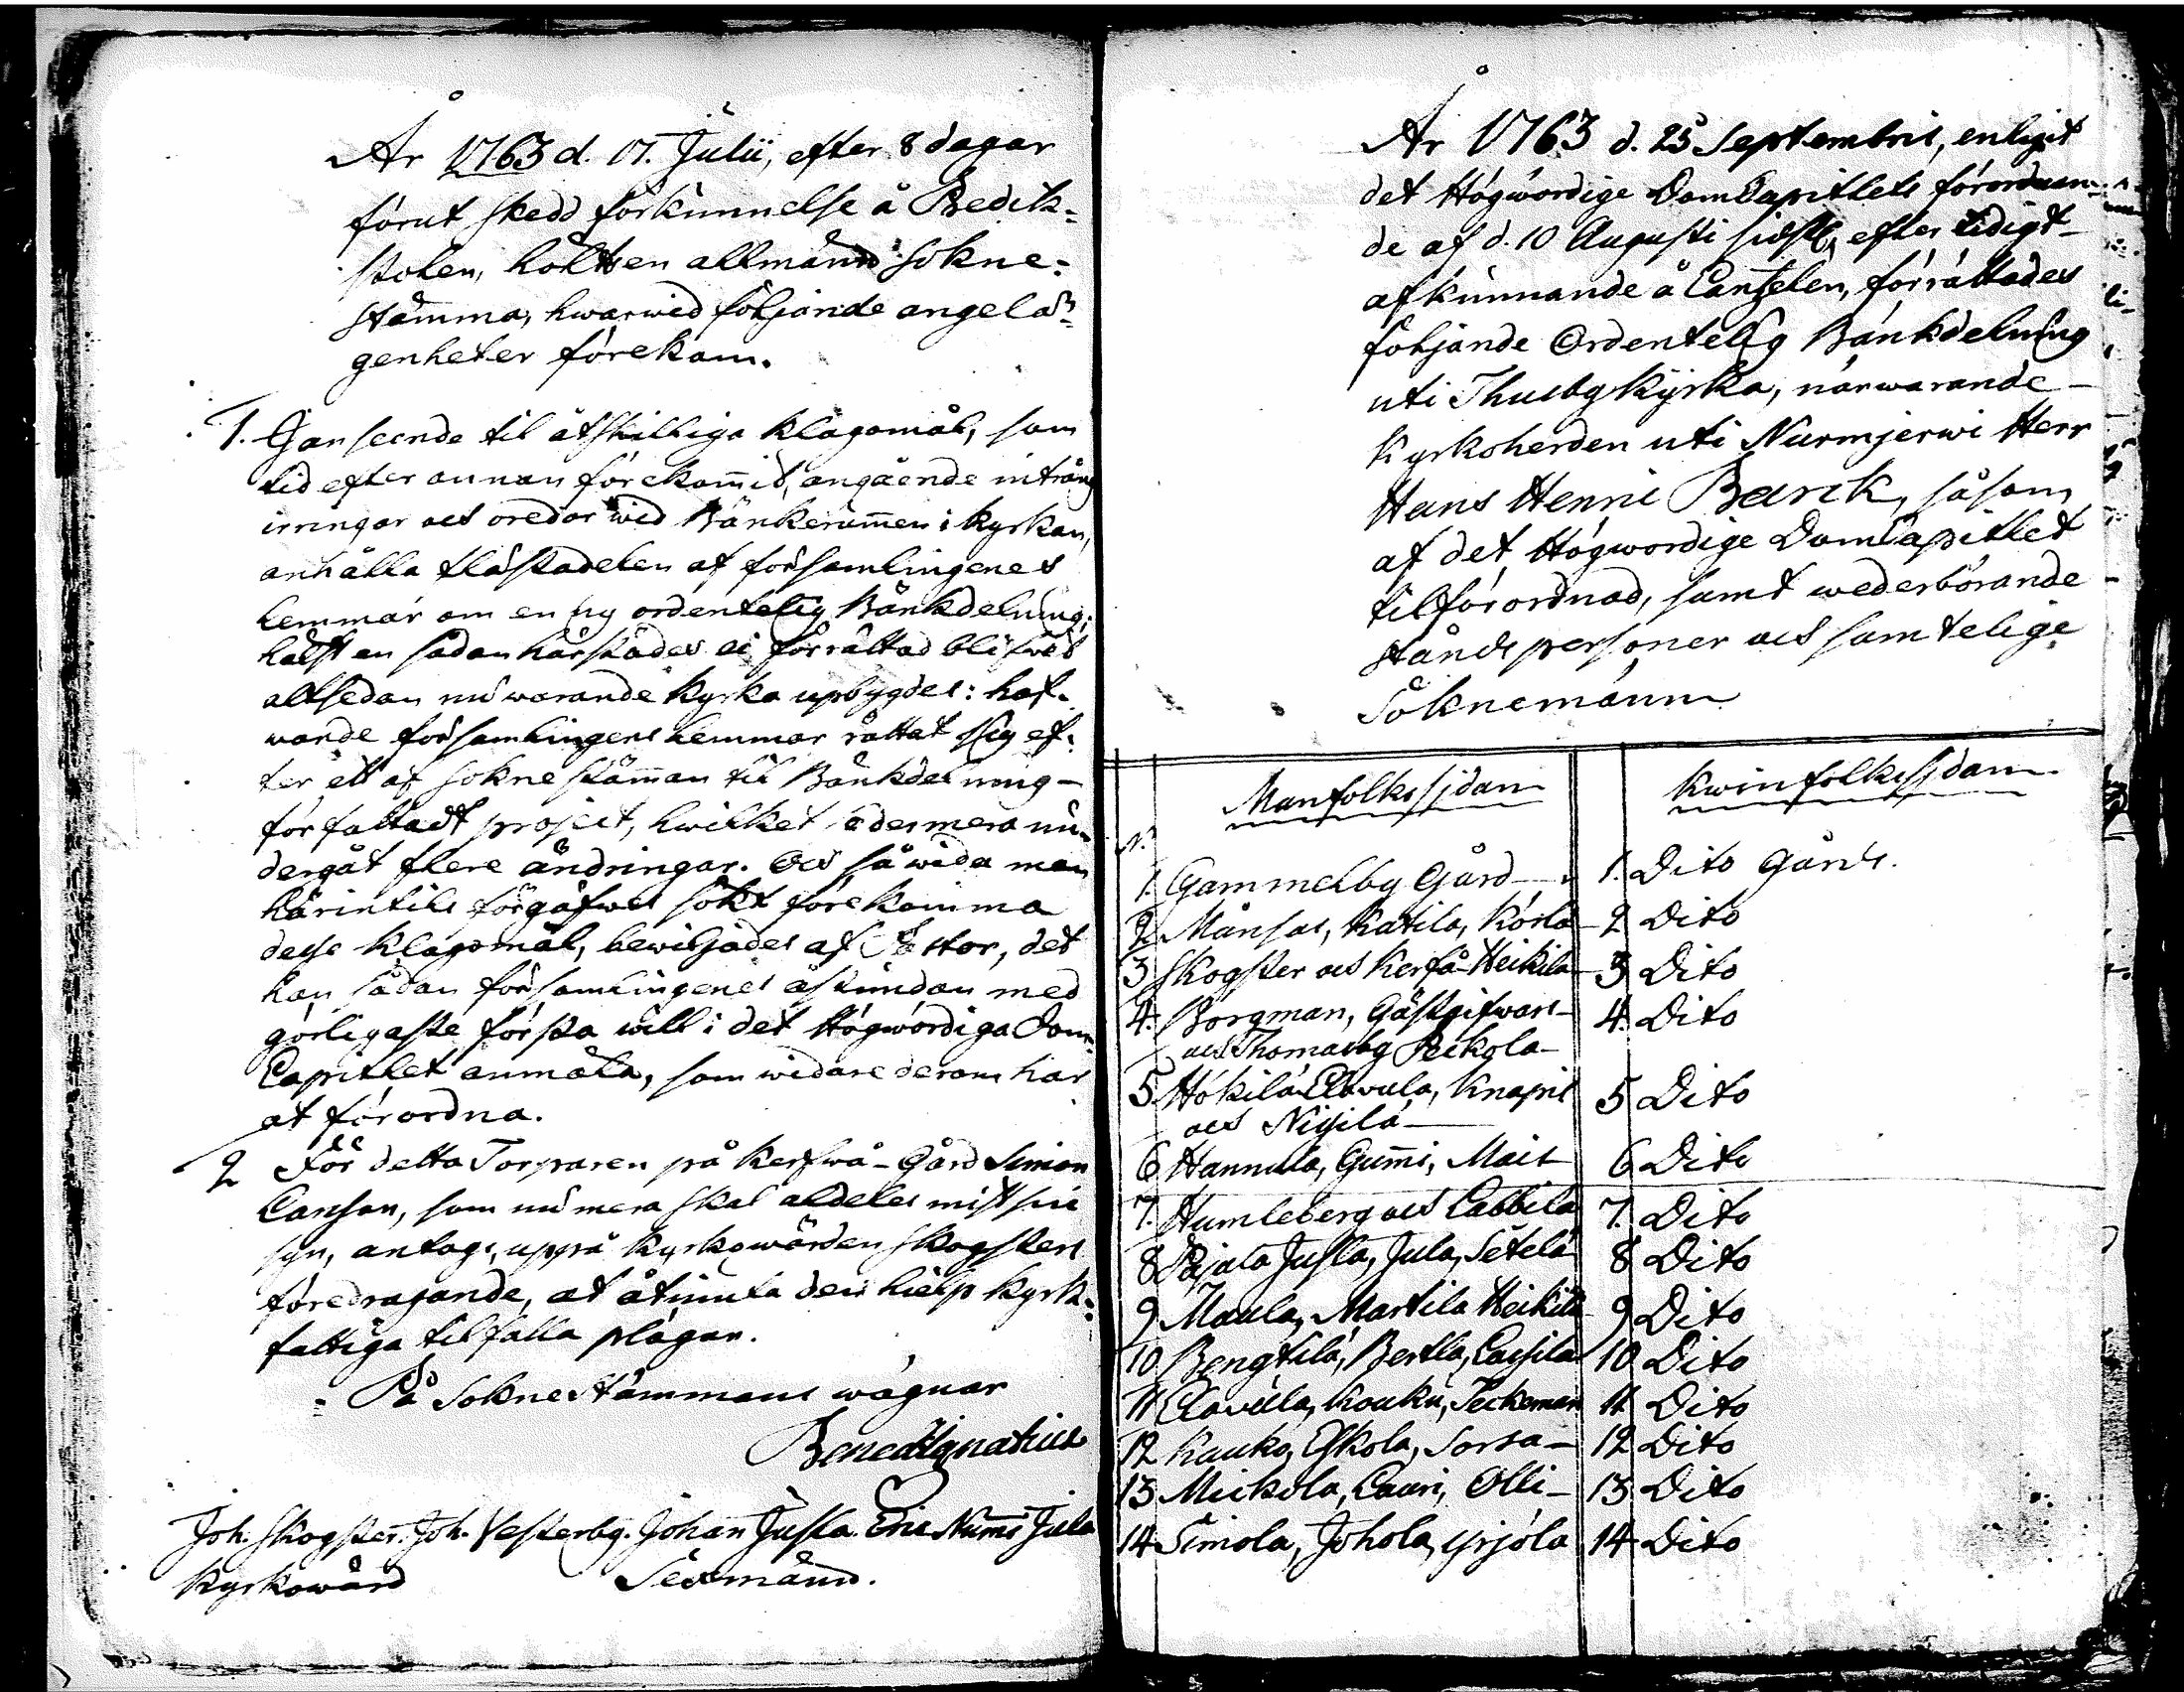 År 1763 d. 17. Julii, efter 8 dagar
förut skedd förkunnelse å Predik-
stolen, höltts en allmänn sokne-
stämma, hwarwid följande angelä-
genheter förekom.
1. I anseende til åtskilliga klagomål, som
tid efter annan förekommit, angående intrång
irringar och oredor wid Bänkerummen i kyrkan,
anhålla tlästadelen af församlingenes
lemmar om en ny ordentelig Bänkdelning;
hälst en sådan härstädes ei förrättad blifwit
altsedan nuwarande kyrka upbygdes: haf-
wande församlingens lemmar rättat sig ef-
ter ett af sokne stämman til Bänkdelning
författadt project, hwilket sedermera un-
dergåt flere ändringar. Och såwida man
härintils förgäfwes sökt förekomma
desse klagomål, bewiljades af Pastor, det
han sådan församlingenes åstundan med
görligaste första will i det Högwördiga Dom
Capitlet anmäla, som widare derom har
at förordna.
2 För detta Torparen på Kerfwå-Gård Simon
Carlson, som nu mera skal aldeles mist sin
syn, antogs, uppå kyrkowärden Skogsters
föredragande, at åtniuta den hielp kyrk-
fattiga tilfalla plägar.
På Sokne Stämmans wägnar
Bened. Ignatius
Joh. Skogster. Joh. Vesterbg. Johan Jusla. Eric Nummi Jula
Kyrkowärd Sexmänn.
År 1763 d. 25 Septembris, enligit
det Högwördige DomCapitlets förordnan-
de af d. 10 Augusti sidstl. efter tidigt
afkunnande å Cantzelen, förrättades
följande Ordentelig Bänkdelning
uti Thusby kyrka, närwarande
Kyrkoherden uti Nurmjerwi Herr
Hans Henric Barck, såsom
af det Högwördige DomCapitlet
tilförordnad, samt wederbörande
ståndspersoner och samtelige
Soknemänn
Manfolkssjdan Kwinfolkssjdan
N.
1. Gammelby Gård 1. Dito Gårds.
2 Månsas, Katila, Körlä 2 Dito
3 Skogster och Kerfå-Heikilä 3 Dito
4. Borgman, Gästgifwars 4. Dito
och Thomasby Peckola
5 Hökilä Clavula, Knapis 5 Dito
och Nissilä
6 Hannula, Gummi, Mais 6 Dito
7. Humleberg och Cabbila 7. Dito
8 Pajala Jusla, Jula, Setelä 8 Dito
9 Maula, Martila Heikilä 9 Dito
10 Bengtilä, Bertla, Caisila 10 Dito
11 Clavula, Kouku, Teckeman 11 Dito
12 Kauko, Eskola, Sorsa 12 Dito
13 Mickola, Cauri, Olli 13 Dito
14 Simola, Johola, Yrjölä 14 Dito